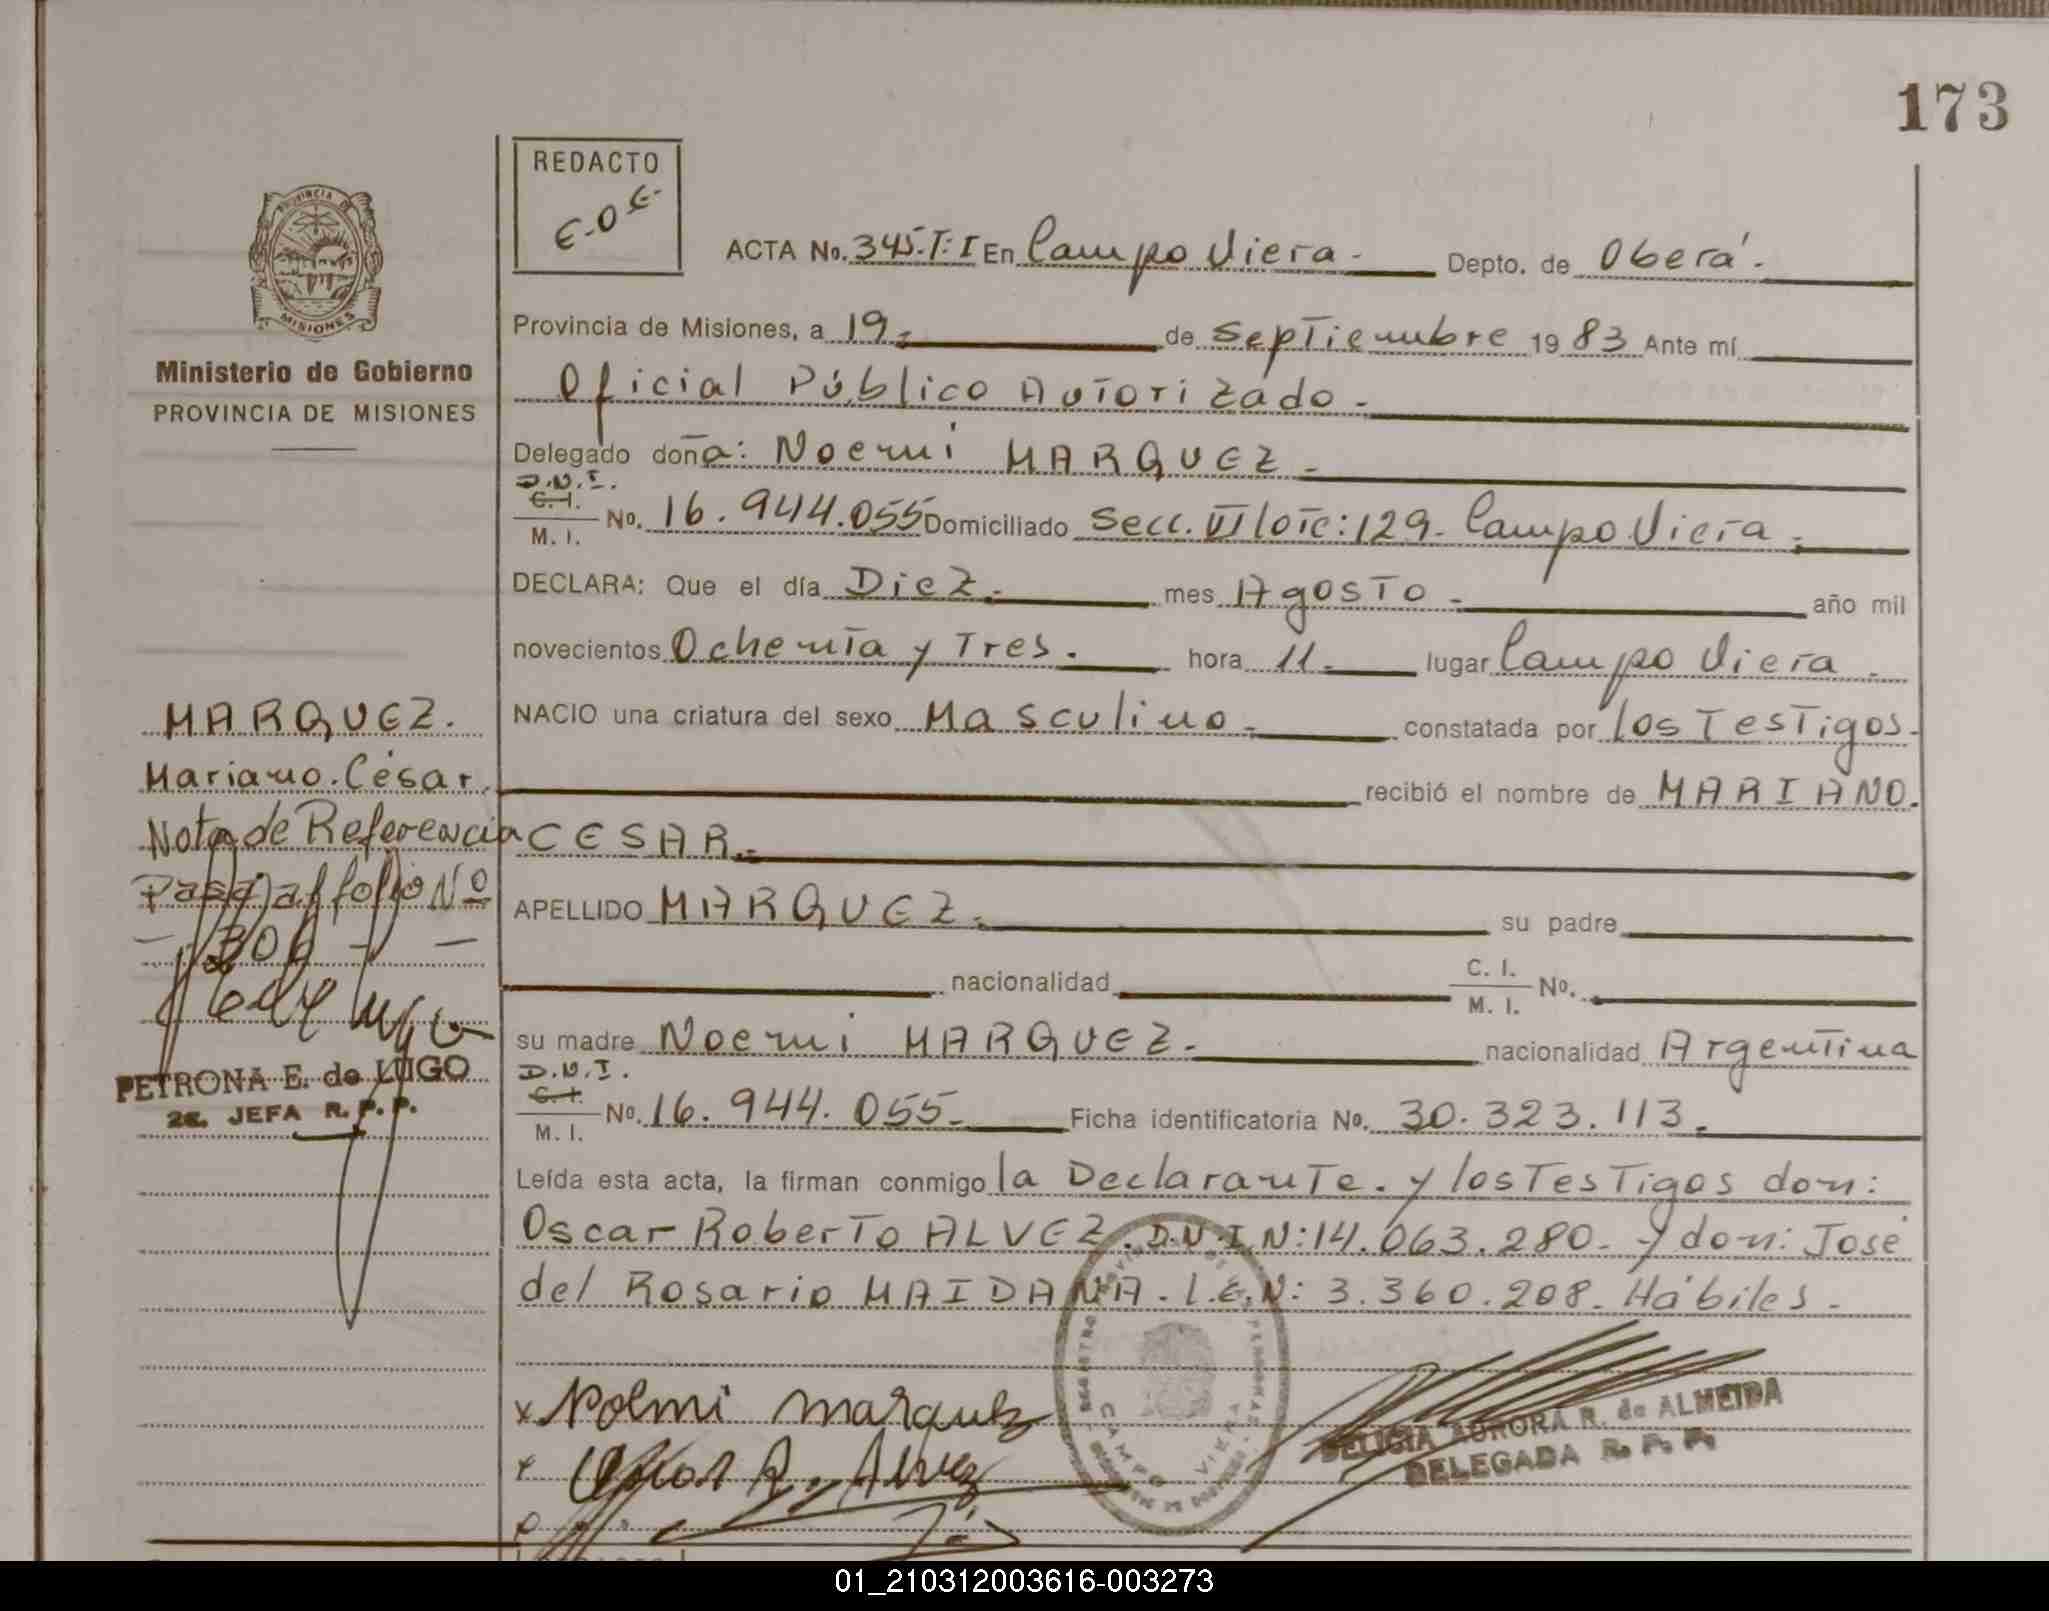 173
REDACTO
E.O.E.
ACTA No. 345.T:I En Campo Viera.- Depto. de Oberá.
PROVINCIA DE MISIONES
Ministerio de Gobierno
PROVINCIA DE MISIONES
Provincia de Misiones, a 19.- de Septiembre 1983 Ante mí
Oficial Público Autorizado.-
Delegado doña: Noemi MARQUEZ.-
D.N.I.
C.I.
M. I. No. 16.944.055 Domiciliado Secc. VI lote: 129. Campo Viera.-
DECLARA: Que el día Diez.- mes Agosto.- año mil
novecientos Ochenta y Tres. hora 11.- lugar Campo Viera.-
NACIO una criatura del sexo Masculino.- constatada por los Testigos.-
recibió el nombre de MARIANO.
CESAR.-
APELLIDO MARQUEZ.- su padre
nacionalidad C. I. M. I. No.
su madre Noemi MARQUEZ.- nacionalidad Argentina
D.N.I.
C.I.
M. I. No. 16.944.055.- Ficha identificatoria No. 30.323.113.
Leída esta acta, la firman conmigo la Declarante. y los Testigos don:
Oscar Roberto ALVEZ. D.N.I.N: 14.063.280.- y don: José
del Rosario MAIDANA. L.E.N: 3.360.208. Hábiles.-
MARQUEZ.
Mariano. César.
Nota de Referencia
Pasa al folio Nº
- 306 - -
PETRONA E. de LUGO
2a. JEFA R. P. P.
x Noemi marquez
x Oscar R. Alvez
CAMPO VIERA
DELICIA AURORA R. de ALMEIDA
DELEGADA R. P. P.
01_210312003616-003273